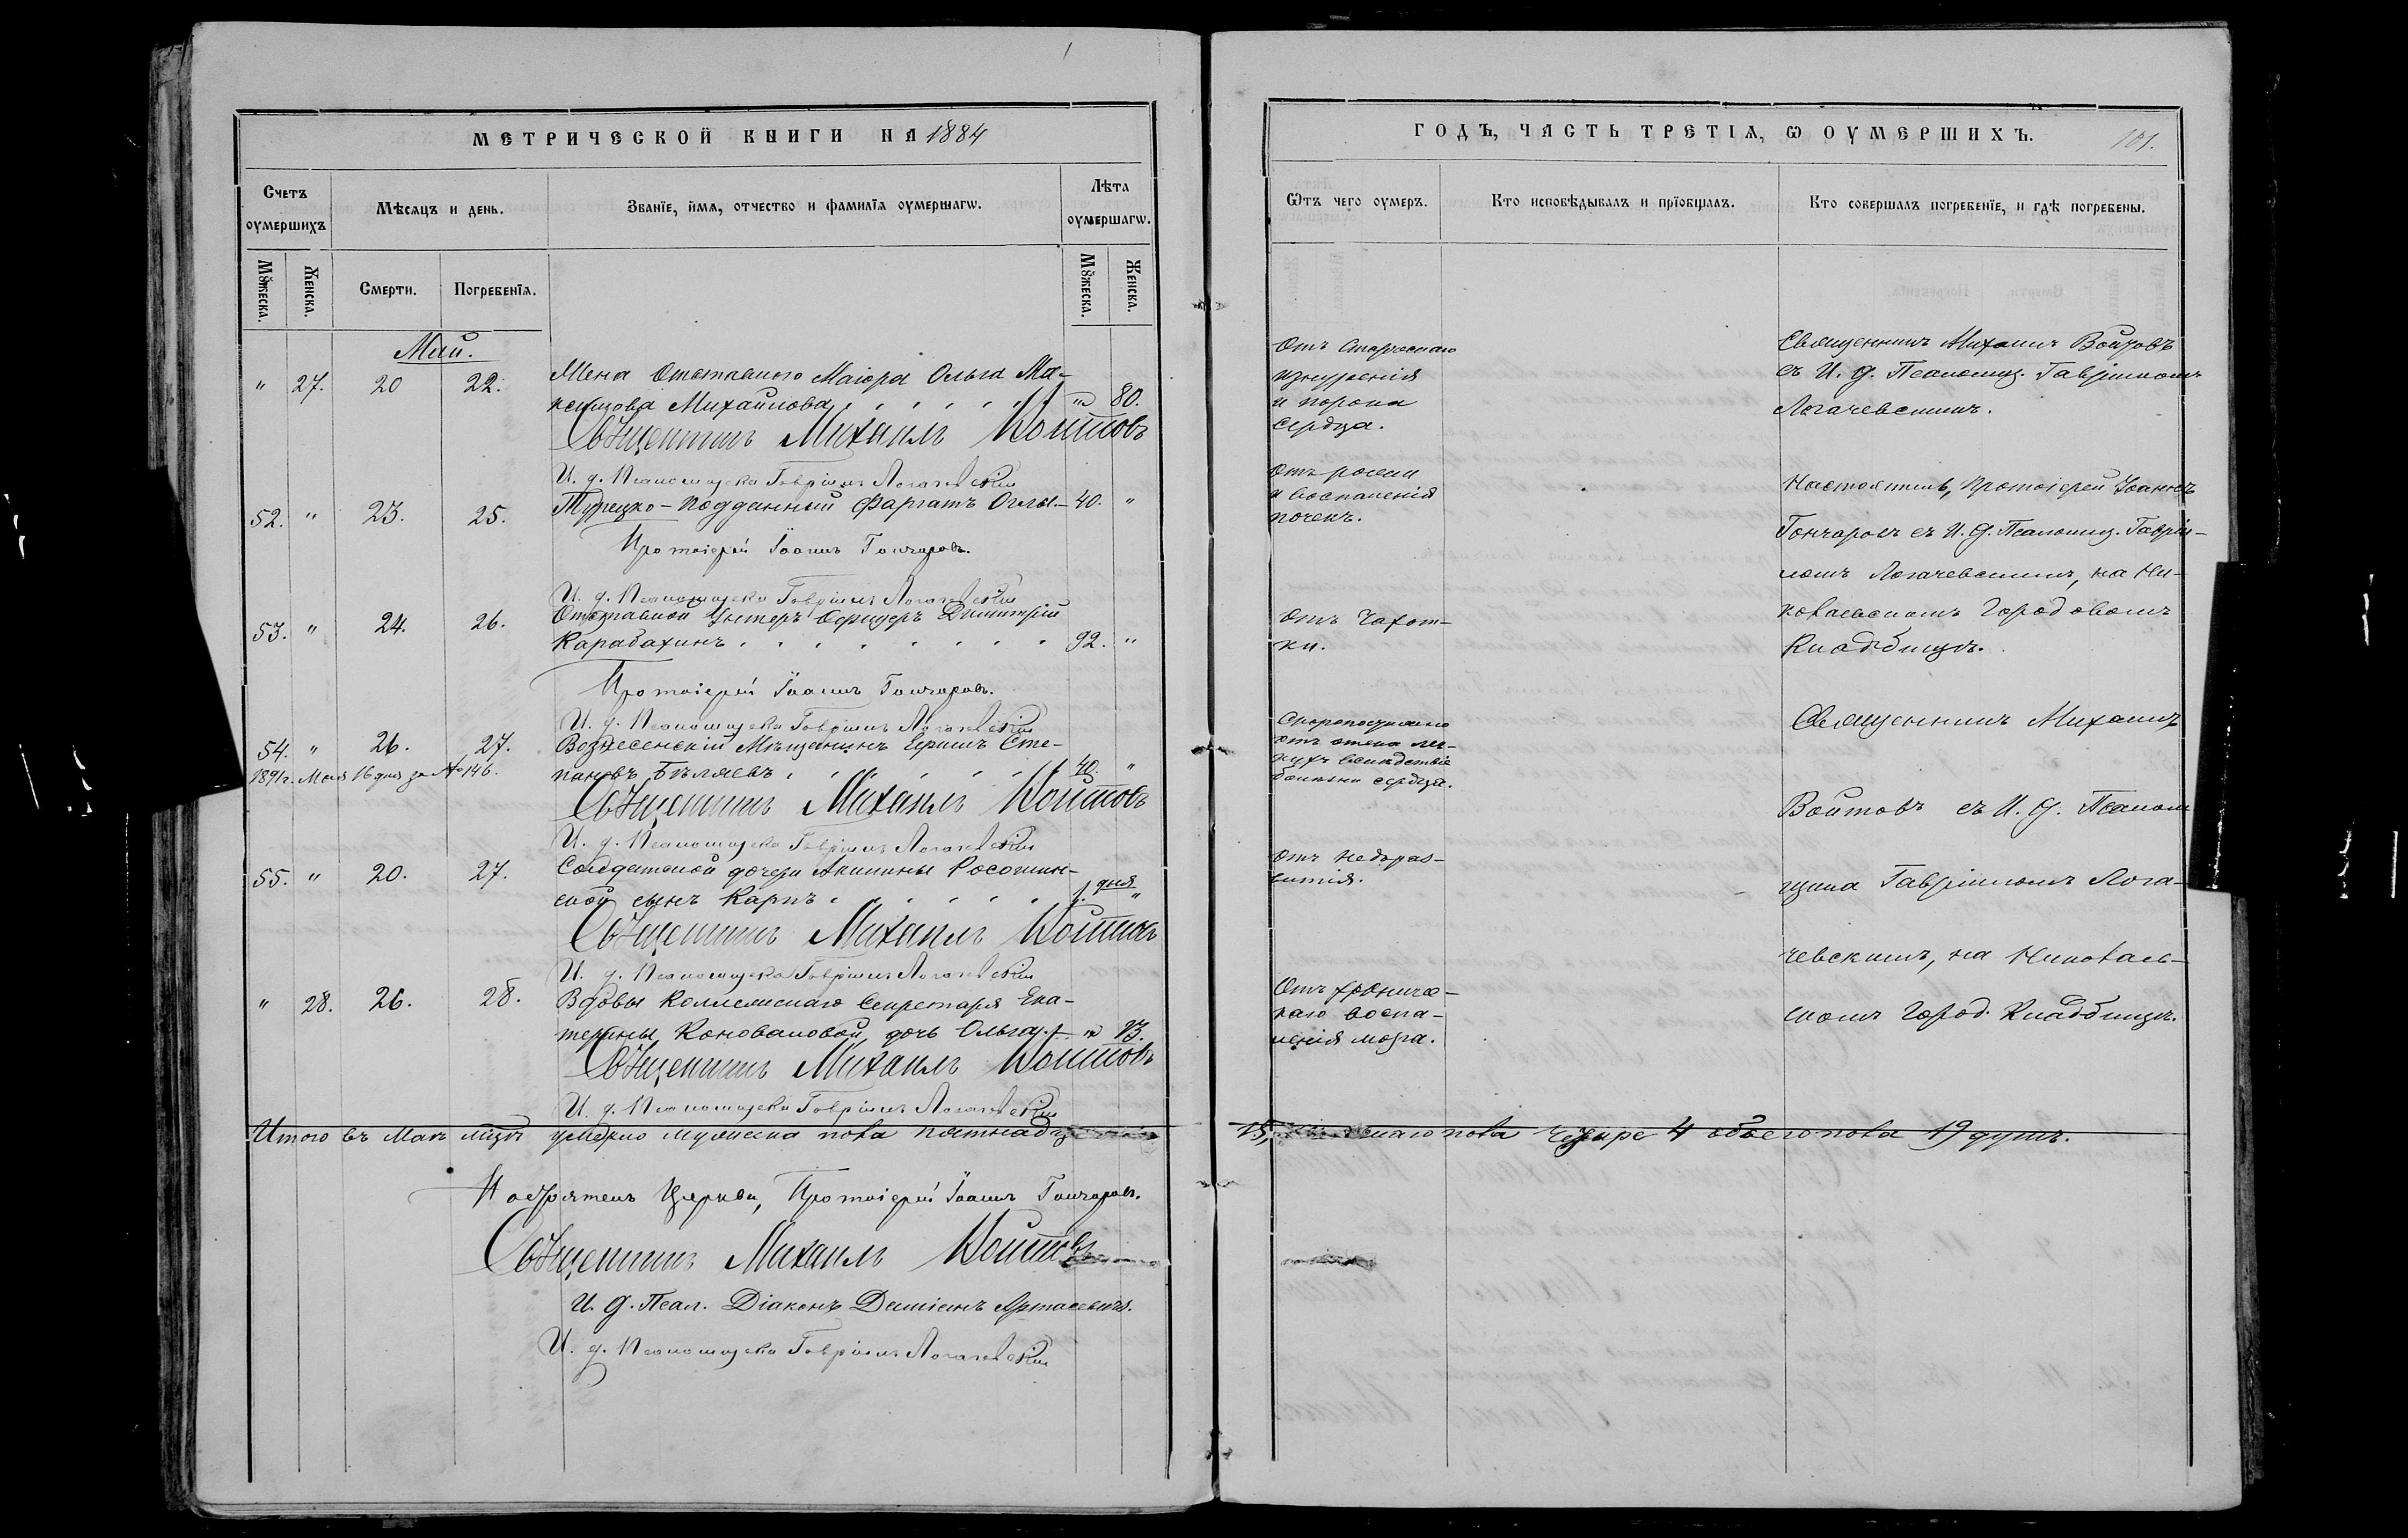 МЕТРИЧЕСКОЙ КНИГИ НА 1884
Счетъ оумершихъ
Мѣсяцъ и день.
Званїе, имя, отчество и фамилїя оумершагѡ.
Лѣта оумершагѡ.
Мꙋжеска.
Женска.
Смерти.
Погребенїя.
Мꙋжеска.
Женска.
Май.
" 27. 20 22. Жена Отставного Маіора Ольга Ма-
ксимова Михайлова " 80.
Священникъ Михаилъ Войтовъ
И. д. Псаломщика Гавріилъ Логачевскій
52. " 23. 25. Турецко-подданный Фаргатъ Оглы. 40. "
Протоіерей Іоаннъ Гончаровъ.
И. д. Псаломщика Гавріилъ Логачевскій
53. " 24. 26. Отставной Унтеръ-Офицеръ Димитрій
Карабахинъ 92. "
Протоіерей Іоаннъ Гончаровъ.
И. д. Псаломщика Гавріилъ Логачевскій
54. " 26. 27. Вознесенскій Мѣщанинъ Ефимъ Сте-
1891г. Мая 16 дня за № 146. пановъ Бѣляевъ 40. "
Священникъ Михаилъ Войтовъ
И. д. Псаломщика Гавріилъ Логачевскій
55. " 20. 27. Солдатской дочери Акилины Росошин-
ской сынъ Карпъ 1. дня "
Священникъ Михаилъ Войтовъ
И. д. Псаломщика Гавріилъ Логачевскій
" 28. 26. 28. Вдовы Коллежскаго Секретаря Ека-
терины Коноваловой дочь Ольга " 13.
Священникъ Михаилъ Войтовъ
И. д. Псаломщика Гавріилъ Логачевскій
Итого въ Маѣ мѣсцѣ умерло мужеска пола пятнадц
Настоятель Церкви, Протоіерей Іоаннъ Гончаровъ.
Священникъ Михаилъ Войтовъ
И. д. Псал. Діаконъ Даміанъ
И. д. Псаломщика Гавріилъ Логачевскій
ГОДЪ, ЧАСТЬ ТРЕТІѦ, Ѡ ОУМЕРШИХЪ.
101.
Ѿтъ чего оумеръ.
Кто исповѣдывалъ и прїобщалъ.
Кто совершалъ погребенїе, и гдѣ погребены.
Отъ Старческаго
изнуренія
и порока
сердца.
Священникъ Михаилъ Войтовъ
съ И. д. Псаломщ. Гавріиломъ
Логачевскимъ.
Отъ рожи
и воспаленія
почекъ.
Настоятель, Протоіерей Іоаннъ
Гончаровъ съ И. д. Псаломщ. Гаврiи-
ломъ Логачевскимъ, на Ни-
колаевскомъ Городовомъ
Кладбищѣ.
Отъ Чахот-
ки.
Скоропостижно
отъ отека лег-
кихъ вслѣдствіе
болѣзни сердца.
Священникъ Михаилъ
Войтовъ съ И. д. Псалом
щика Гавріиломъ Лога-
чевскимъ, на Николаев-
скомъ Город. Кладбищѣ.
Отъ недораз-
витія.
Отъ хрониче-
каго воспа-
ленія мозга.
15, женскаго пола четыре 4 обоего пола 19 душъ.